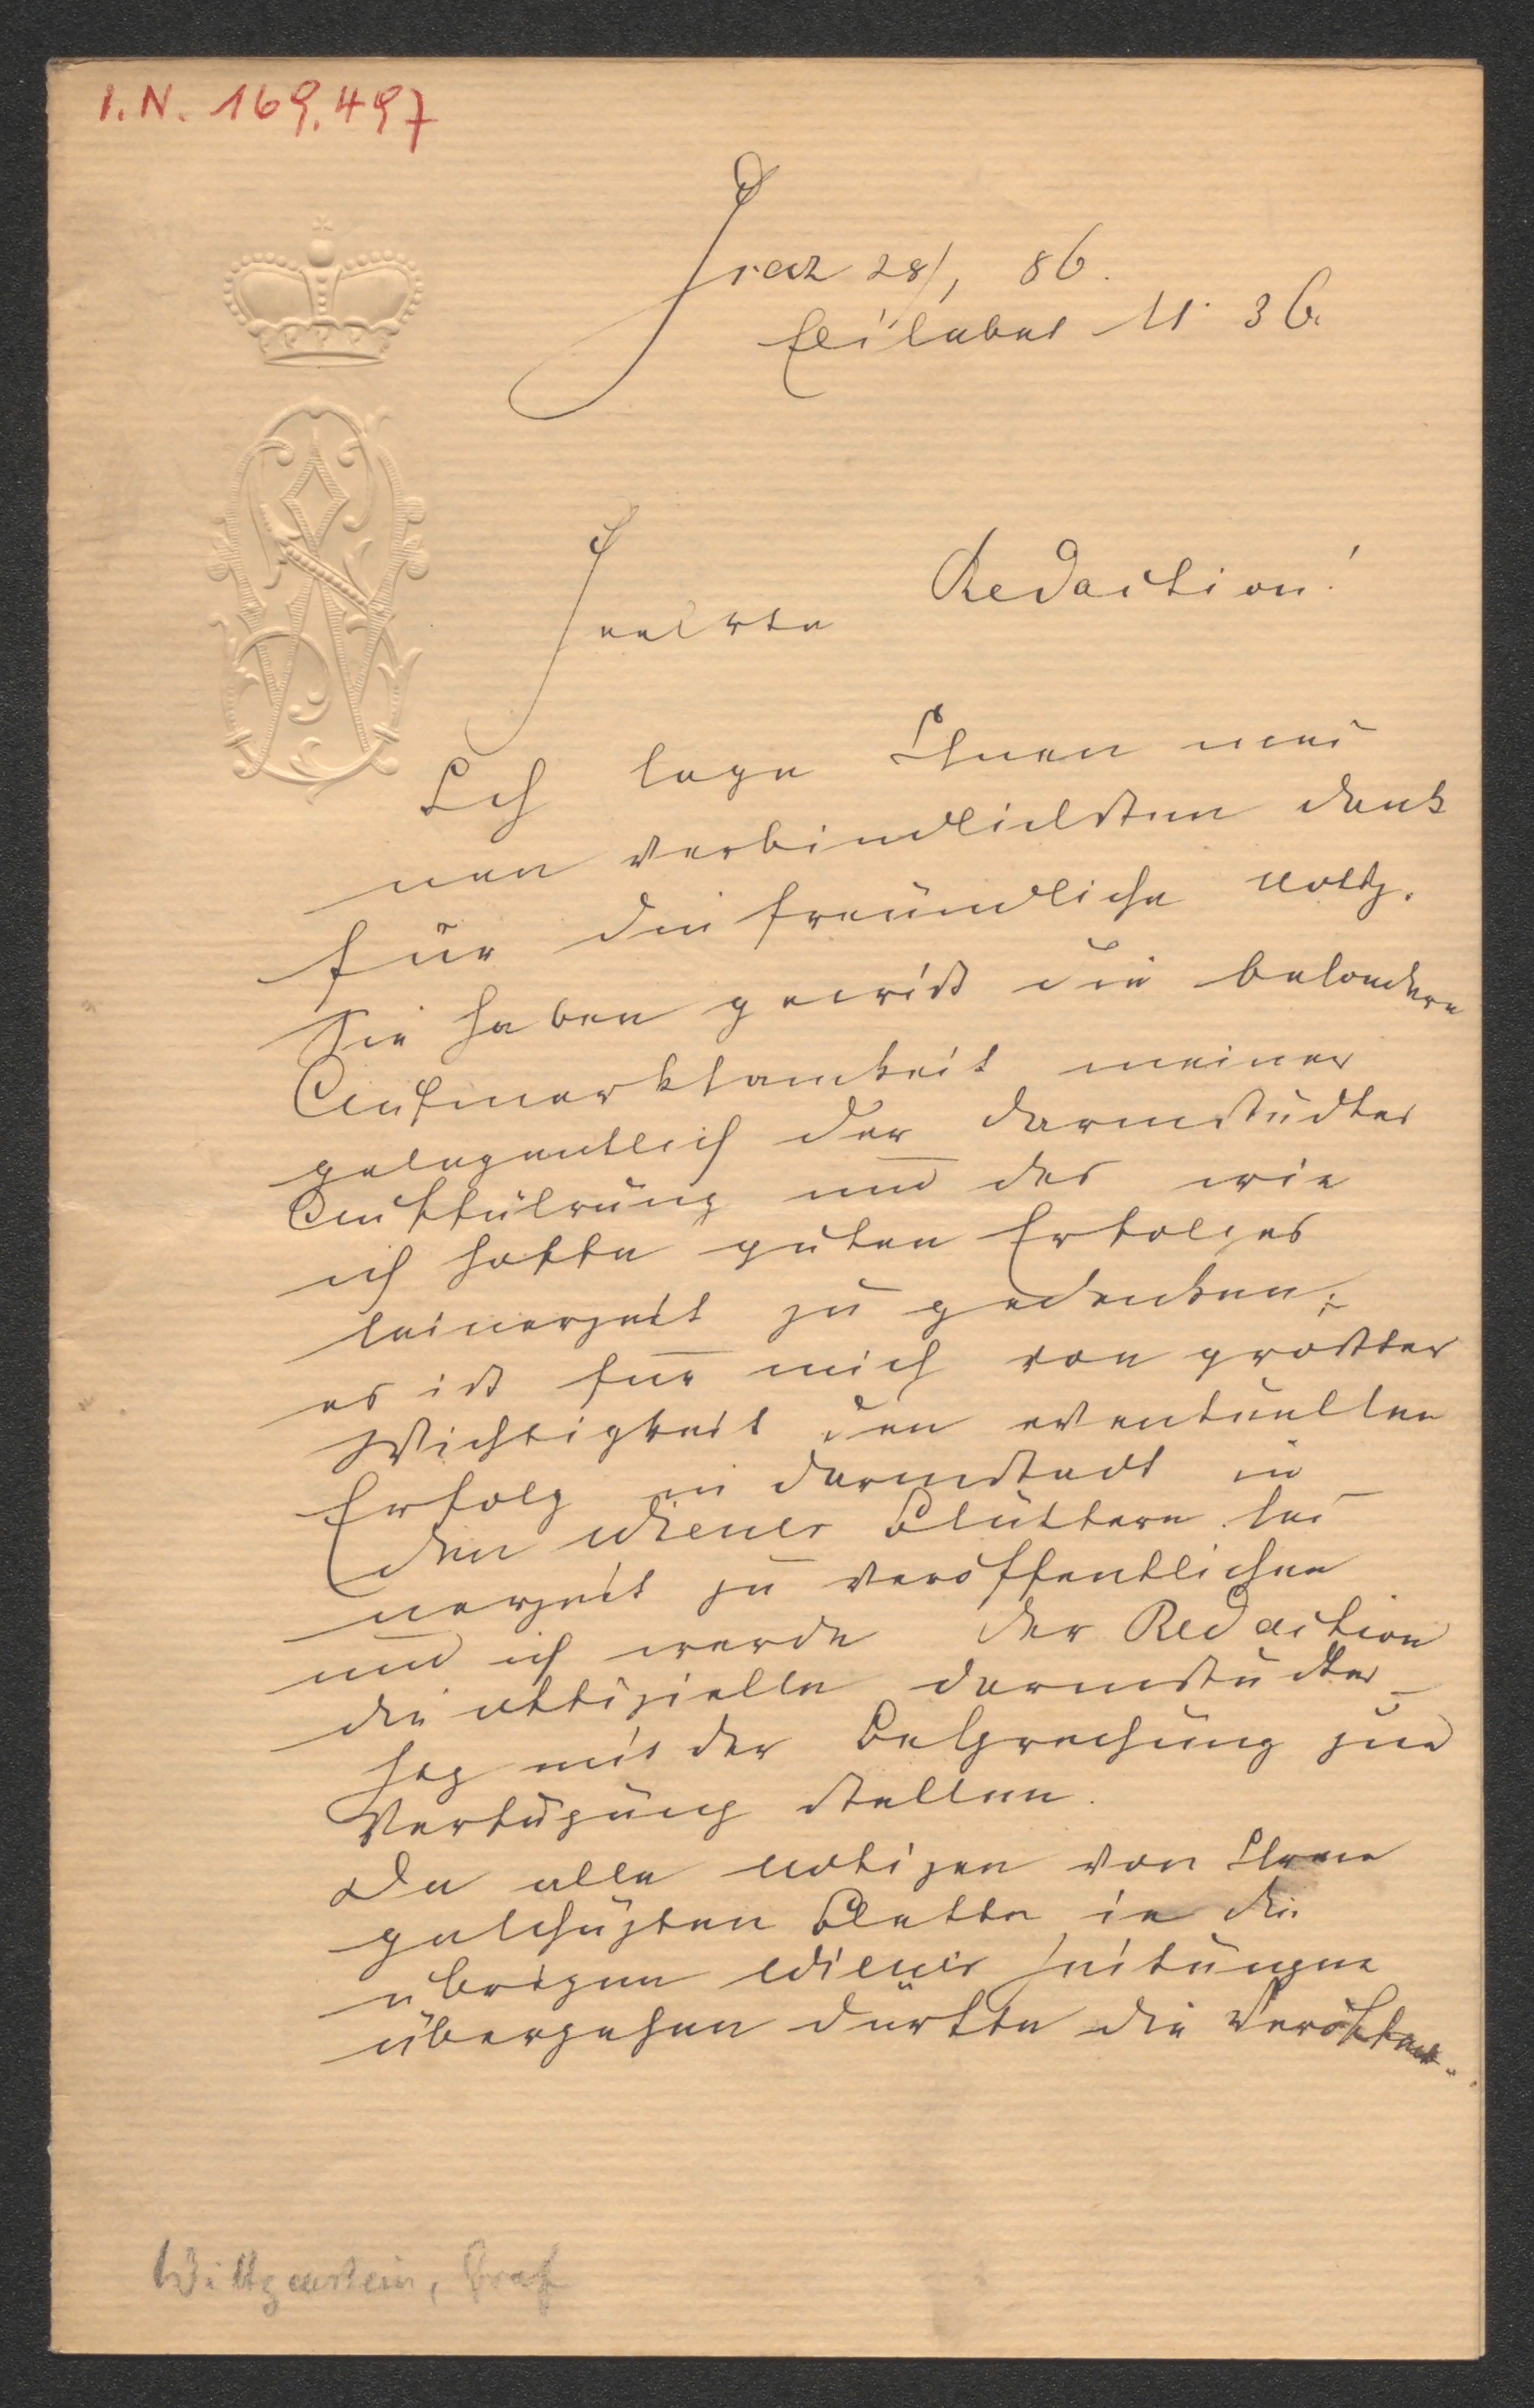 I.N. 169.497
Graz 28/1 86.
Elisabet N. 36.
Geehrte Redaction!
Ich sage Ihnen mei
nen verbindlichsten Dank
für die freundliche Notiz.
Sie haben gewiß die besondere
Aufmerksamkeit meiner
gelegentlich der Darmstädter
Aufführung und des wie
ich hoffe guten Erfolges
seinerzeit zu gedenken;
es ist für mich von größter
Wichtigkeit den eventuellen
Erfolg in Darmstadt in
den Wiener Blättern sei
nerzeit zu veröffentlichen
und ich werde der Redaction
die offizielle Darmstädter
Ztg mit der Besprechung zur
Verfügung stellen.
Da alle Notizen von Ihrem
geschäzten Blatte in die
übrigen Wiener Zeitungen
übergehen dürfte die Veröffent-
Wittgenstein, Graf